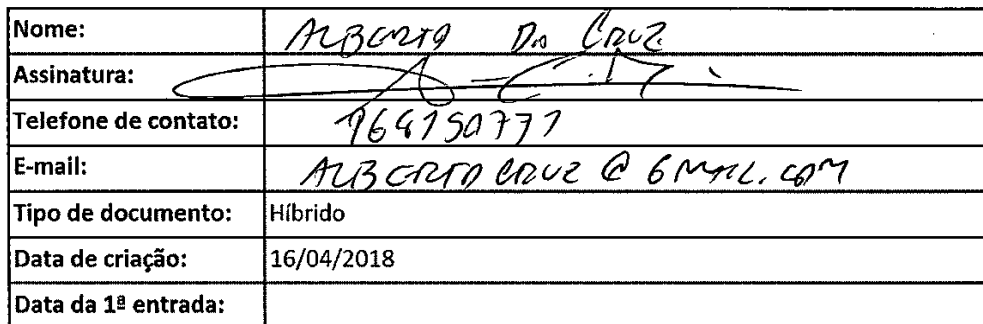 Nome: ALBERTO DA CRUZ
Assinatura:
Telefone de contato: 964150771
E-mail: ALBERTOCRUZ@GMAIL.COM
Tipo de documento: Híbrido
Data de criação: 16/04/2018
Data da 1ª entrada: